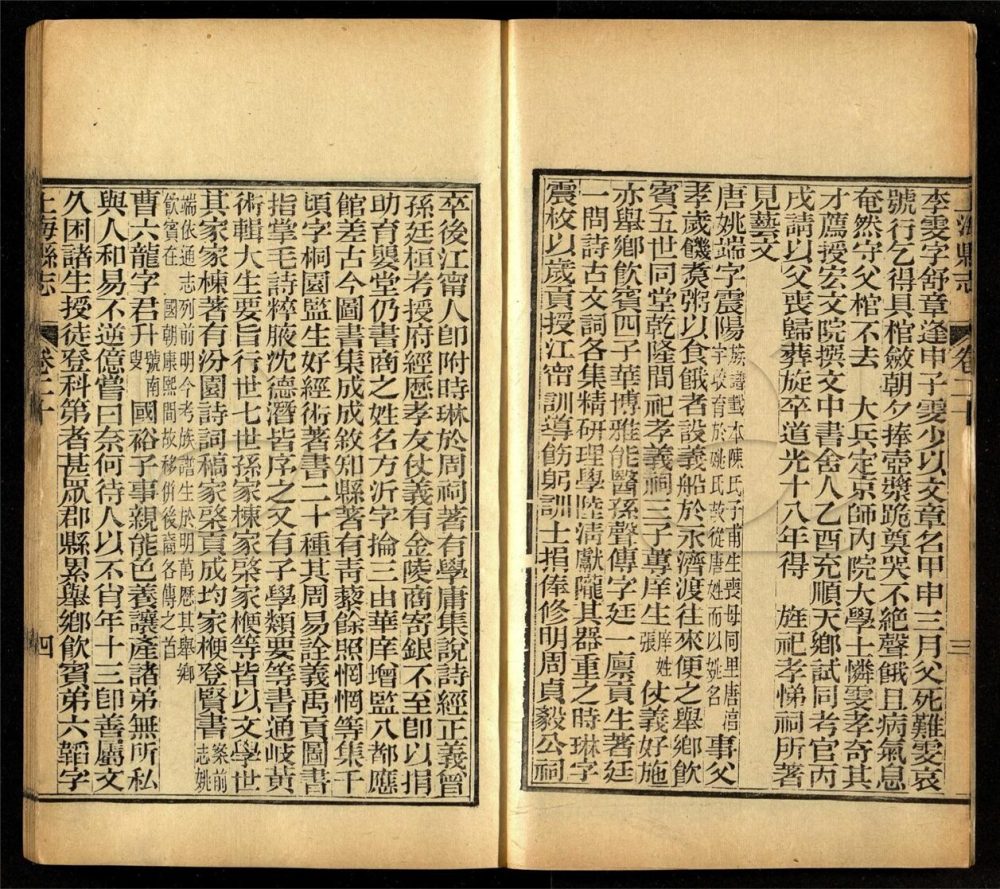 上海縣志 卷二十 三
李雯字舒章逢申子雯少以文章名甲申三月父死難雯哀
號行乞得具棺斂朝夕捧壺漿跪奠哭不絕聲餓且病氣息
奄然守父棺不去 大兵定京師內院大學士憐雯孝奇其
才薦授宏文院撰文中書舍人乙酉充順天鄉試同考官丙
戌請以父喪歸葬旋卒道光十八年得 旌祀孝悌祠所著
見藝文
唐姚端字震陽族譜載本陳氏子甫生喪母同里唐溍字 收育於姚氏故從唐姓而以姚名 事父
孝歲饑煑粥以食餓者設義船於永濟渡往來便之舉鄉飲
賓五世同堂乾隆間祀孝義祠三子蓴庠生庠姓張 仗義好施
亦舉鄉飲賓四子華博雅能醫孫聲傳字廷一廩貢生著廷
一問詩古文詞各集精研理學陸清獻隴其器重之時琳字
震枚以歲貢授江甯訓導飭躬訓士捐俸修明周貞毅公祠
卒後江甯人卽附時琳於周祠著有學庸集說詩經正義曾
孫廷桓考授府經歷孝友仗義有金陵商寄銀不至卽以捐
助育嬰堂仍書商之姓名方沂字掄三由華庠增監八都應
館差古今圖書集成成敘知縣著有靑藜餘照惘惘等集千
頃字桐園監生好經術著書二十種其周易詮義禹貢圖書
指掌毛詩粹腋沈德潛皆序之又有子學類要等書通岐黃
術輯大生要旨行世七世孫家棟家棨家楩等皆以文學世
其家家棟著有汾園詩詞稿家棨貢成均家楩登賢書案前志姚
端依通志列前明今考族譜生於明萬歷其舉鄉
飮賓在 國朝康熙間故移併後裔各傳之首
曹六龍字君升號南叟 國裕子事親能色養讓產諸弟無所私
與人和易不逆億嘗曰奈何待人以不肖年十三卽善屬文
久困諸生授徒登科第者甚眾郡縣累舉鄉飮賓弟六韜字
上海縣志 卷二十 四